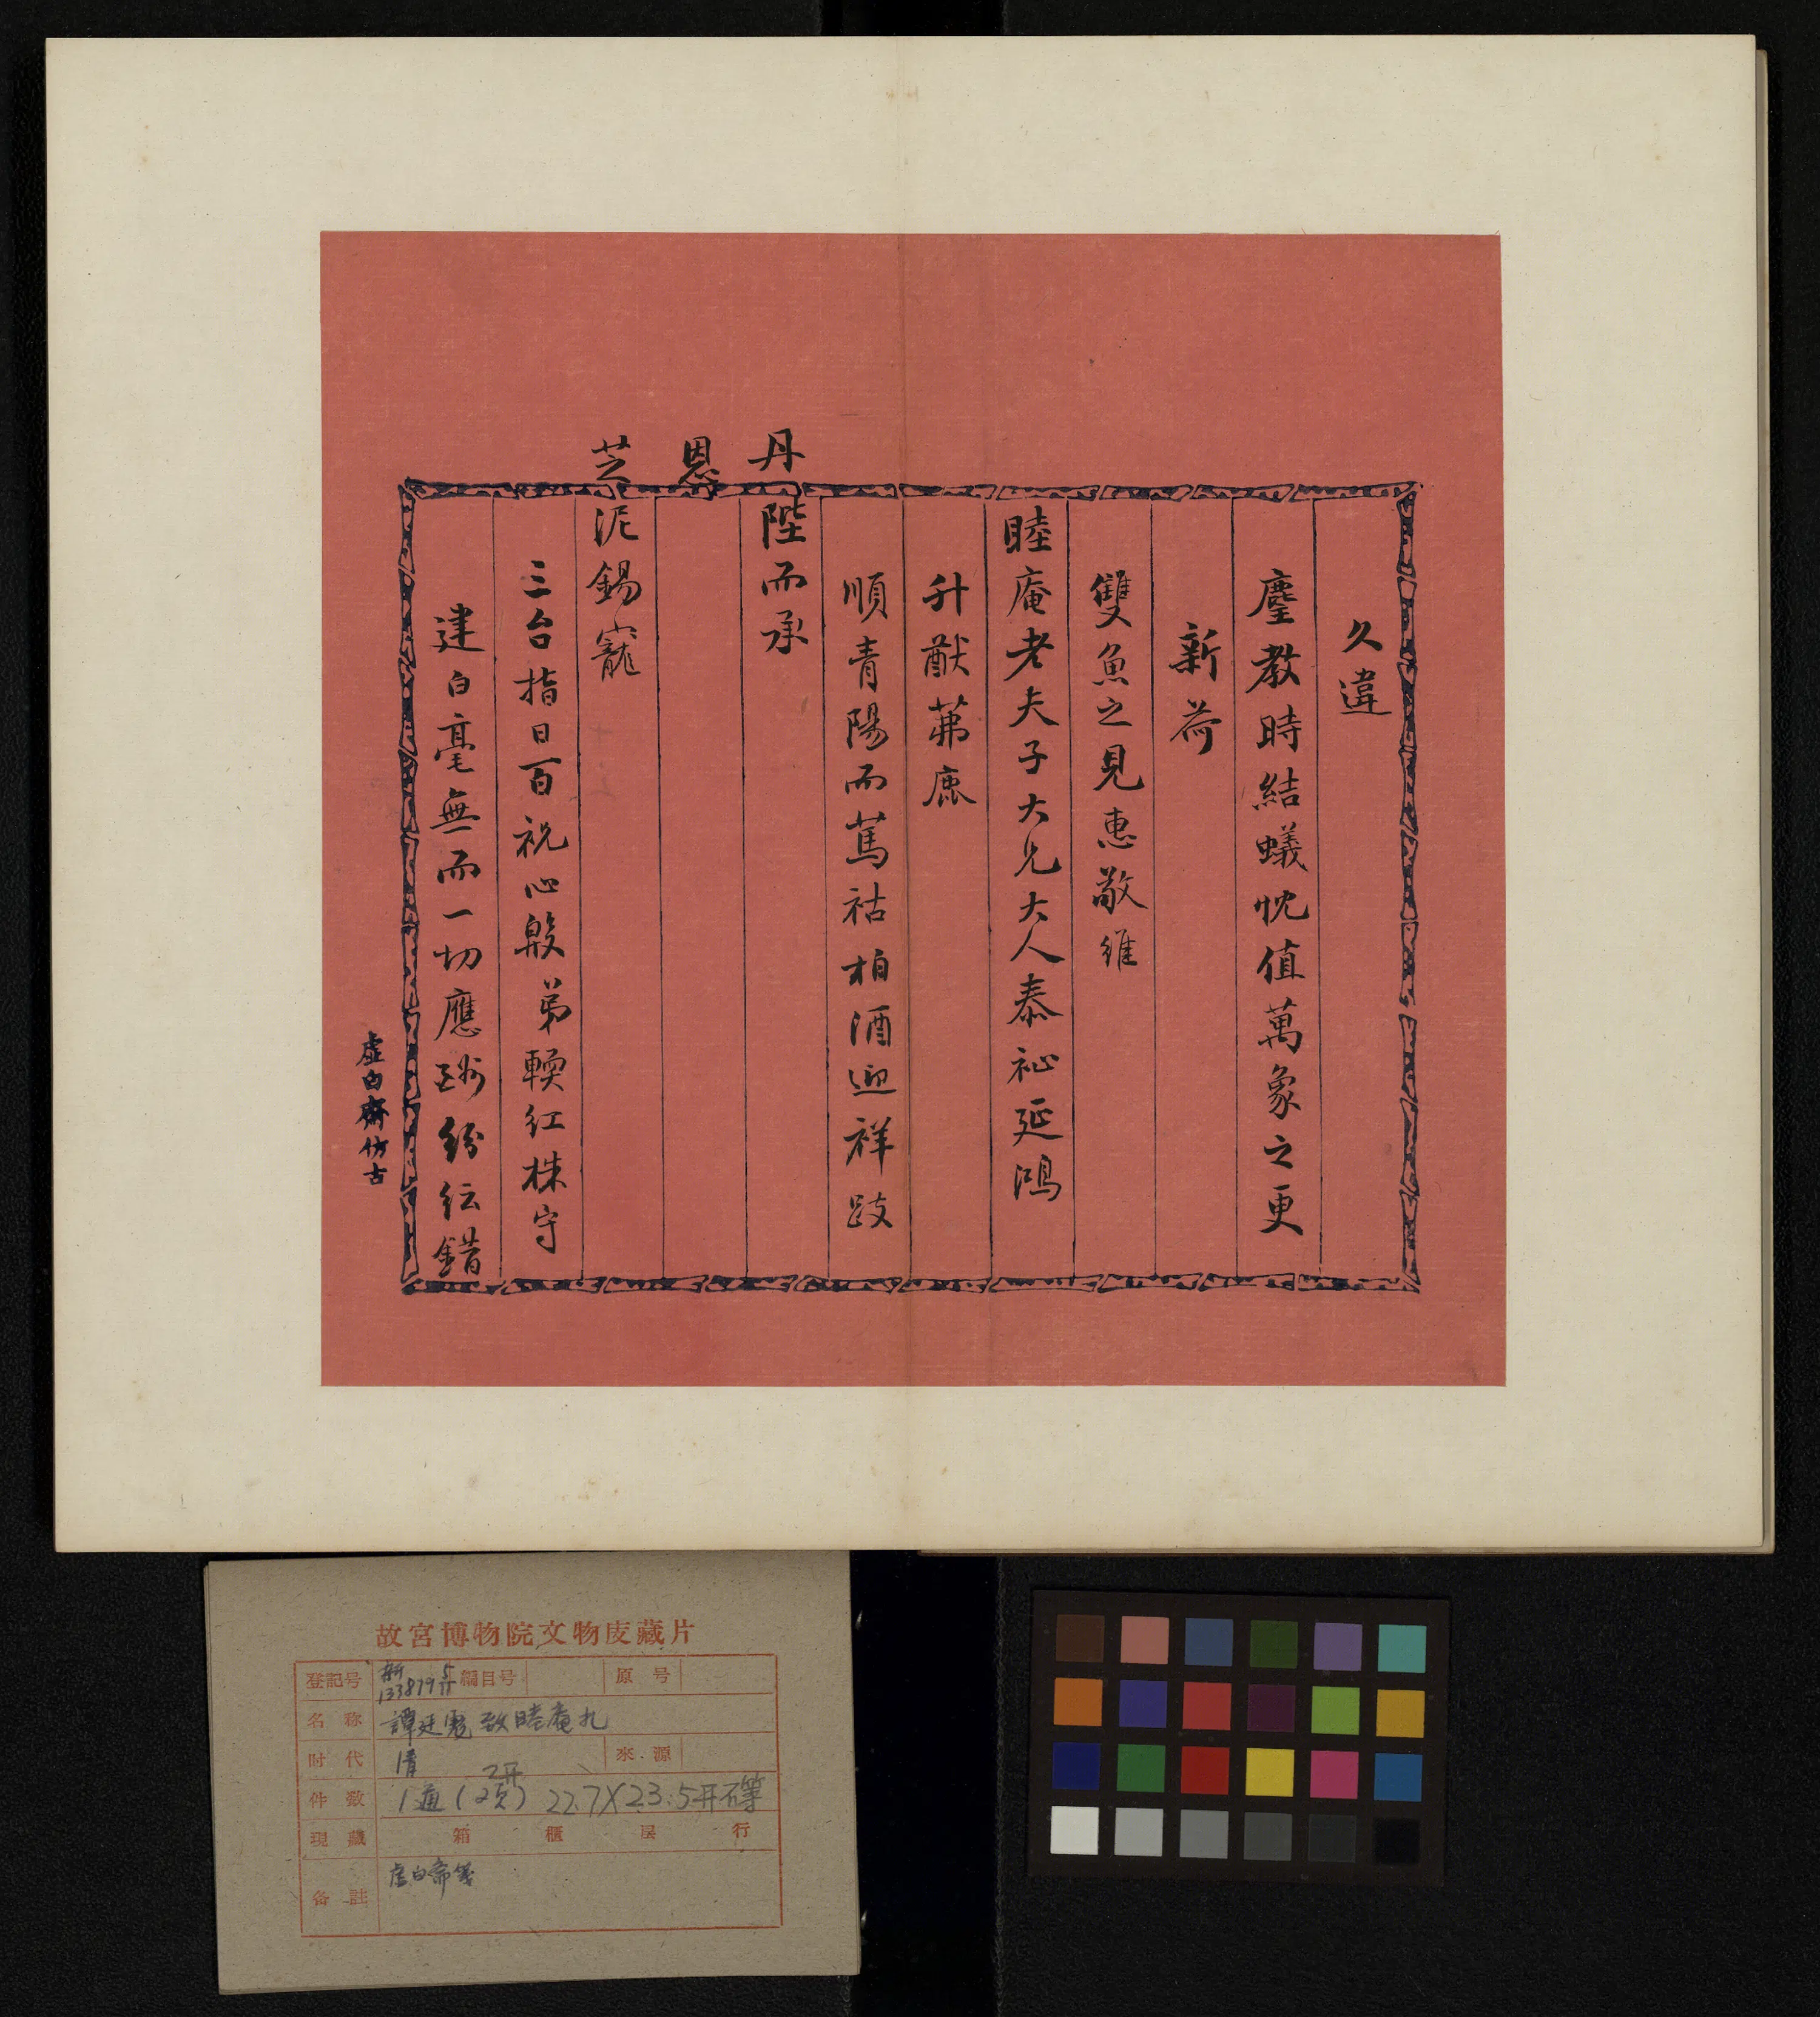 久違
麈教時結蟻忱值萬象之更
新荷
雙魚之見惠敬維
睦庵老夫子大兄大人泰祉延鴻
升猷茀鹿
順青陽而篤祜柏酒迎祥跂
丹陛而承
恩
芝泥錫寵
三台指日百祝心殷弟轅紅株守
建白毫無而一切應酬紛紜錯
虛白齋仿古
故宮博物院文物庋藏片
登記号 新133879 5/11 編目号 原号
名称 譚廷 致睦庵札
时代 清 來源
件数 1通(2頁) 2开 22.7X23.5开不等
現藏 箱 櫃 层 行
备註 虛白齋箋